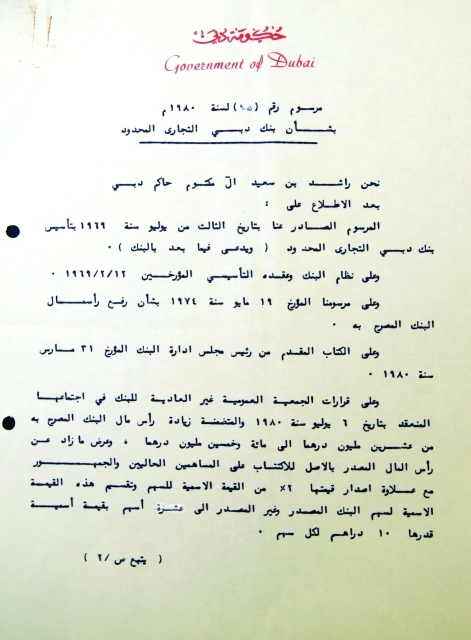 حكومة دبي
Government of Dubai
مرسوم رقم (٩٥) لسنة ١٩٨٠م
بشأن بنك دبي التجارى المحدود
نحن راشد بن سعيد الّ مكتوم حاكم دبي
بعد الاطلاع على :
المرسوم الصادر عنا بتاريخ الثالث من يوليو سنة ١٩٦٩ بتأسيس
بنك دبي التجارى المحدود ( ويدعى فيما بعد بالبنك ) ٠
وعلى نظام البنك وعقده التأسيسي المؤرخين ١٩٦٩/٢/١٢ ٠
وعلى مرسومنا المؤرخ ١٩ مايو سنة ١٩٧٤ بشأن رفع رأسمال
البنك المصرح به ٠
وعلى الكتاب المقدم من رئيس مجلس ادارة البنك المؤرخ ٣١ مارس
سنة ١٩٨٠ ٠
وعلى قرارات الجمعية العمومية غير العادية للبنك في اجتماعها
المنعقد بتاريخ ٦ يوليو سنة ١٩٨٠ والمتضمنة زيادة رأس مال البنك المصرح به
من عشرين مليون درهما الى مائة وخمسين مليون درهما ، وعرض ما زاد عن
رأس المال المصدر بالاصل للاكتتاب على المساهمين الحاليين والجمهور
مع علاوة اصدار قيمتها ٢٪ من القيمة الاسمية للسهم وتقسم هذه القيمة
الاسمية لسهم البنك المصدر وغير المصدر الى عشرة أسهم بقيمة أسمية
قدرها ١٠ دراهم لكل سهم ٠
( يتبع ص /٢ )